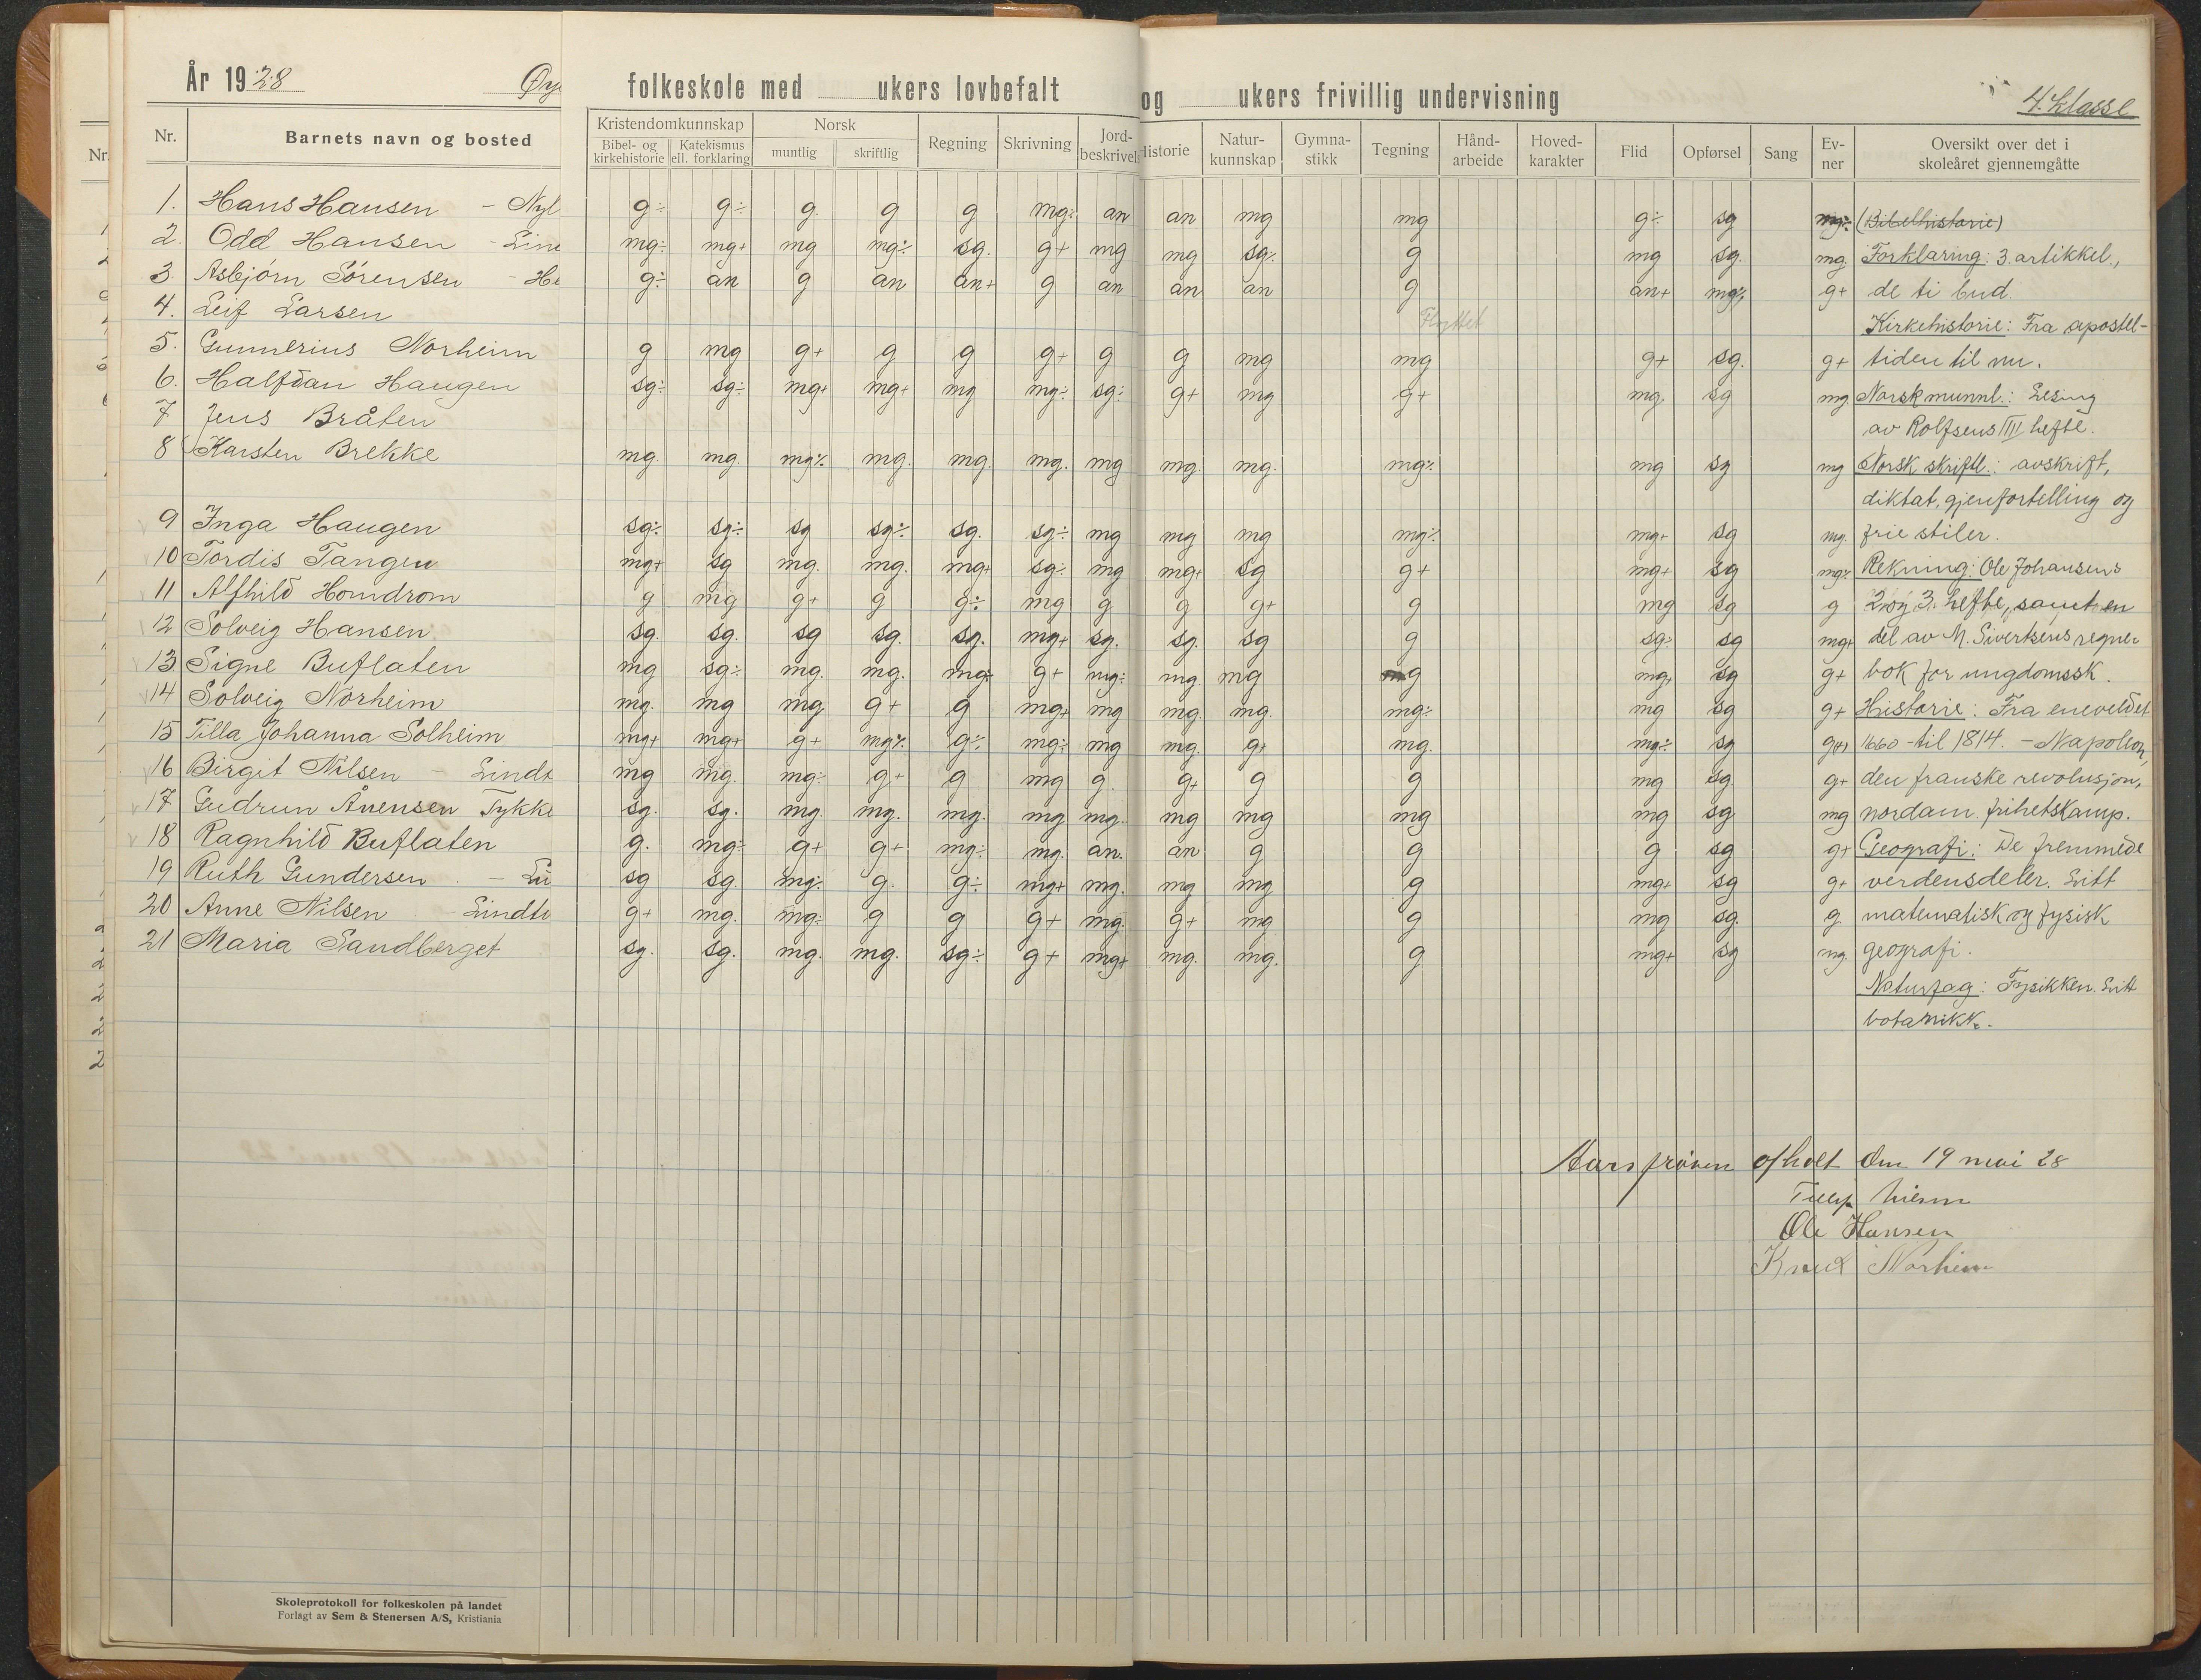 År 1928 Øy folkeskole med ukers lovbefalt og ukers frivillig undervisning 4. klasse
Nr. Barnets navn og bosted Kristendomkunnskap Norsk Regning Skrivning Jord-beskrivel Historie Natur-kunnskap Gymna-stikk Tegning Hånd-arbeide Hoved-karakter Flid Opførsel Sang Ev-ner Oversikt over det i skoleåret gjennemgåtte
Bibel- og kirkehistorie Katekismus ell. forklaring muntlig skriftlig
1. Hans Hansen - Nyl g÷ g÷ g. g g mg÷ an an mg mg g÷ sg mg÷ (Bibelhistorie)
2. Odd Hansen - Lind mg÷ mg+ mg mg÷ sg. g+ mg mg sg÷ g mg sg. mg Forklaring: 3. artikkel.,
3 Asbjörn Sörensen - He g÷ an g an an+ g an an an g an+ mg÷ g+ de ti bud.
4. Leif Larsen Flyttet Kirkehistorie: Fra apostel-
5. Gunnerius Norheim g mg g+ g g g+ g g mg mg g+ sg. g+ tiden til nu.
6. Halfdan Haugen sg÷ sg÷ mg+ mg+ mg mg÷ sg÷ g+ mg g+ mg. sg mg Norsk munnl.: Lesing
7 Jens Bråten av Rolfsens III hefte.
8 Karsten Brekke mg. mg. mg÷ mg. mg. mg. mg mg. mg. mg÷ mg sg mg Norsk skriftl.: avskrift,
diktat, gjenfortelling og
9 Inga Haugen sg÷ sg÷ sg sg÷ sg. sg÷ mg mg mg mg÷ mg+ sg mg. frie stiler.
10 Tordis Tangen mg+ sg mg. mg. mg+ sg÷ mg mg+ sg g+ mg+ sg mg÷ Rekning: Ole Johansens
11 Alfhild Homdrom g mg g+ g g÷ mg g g g+ g mg sg g 2. og 3. hefte, samt en
12 Solveig Hansen sg. sg. sg sg. sg. mg+ sg. sg. sg g sg÷ sg mg+ del av M. Sivertsens regne-
13 Signe Buflaten mg sg÷ mg. mg. mg÷ g+ mg÷ mg. mg mg mg+ sg g+ bok for ungdomssk.
14 Solveig Norheim mg. mg mg g+ g mg+ mg mg. mg. mg÷ mg sg g+ Historie: Fra eneveldet
15 Tilla Johanna Solheim mg+ mg+ g+ mg÷ g÷ mg÷ mg mg. g+ mg. mg÷ sg g(+) 1660 - til 1814. - Napoleon,
16 Birgit Nilsen - Lindt mg mg. mg÷ g+ g mg g. g+ g g mg sg. g+ den franske revolusjon,
17 Gudrun Ånensen Tykke sg. sg. mg. mg. mg. mg mg. mg mg mg mg sg mg nordam. frihetskamp.
18 Ragnhild Buflaten g. mg÷ g+ g+ mg÷ mg. an. an g g g sg g+ Geografi: De fremmede
19 Ruth Gundersen - Li sg sg. mg÷ g. g÷ mg+ mg. mg mg g mg+ sg g+ verdensdeler. Litt
20 Anne Nilsen - Lindt g+ mg. mg÷ g g g+ mg. g+ mg g mg sg. g matematisk og fysisk
21 Maria Sandberget sg. sg. mg. mg. sg÷ g+ mg+ mg. mg. g mg+ sg mg geografi.
Naturfag: Fysikken. Litt
botanikk.
Aarsprøven afholt den 19 mai 28
Ole Hansen
Knut Norheim
Skoleprotokoll for folkeskolen på landet
Forlagt av Sem & Stenersen A/S, Kristiania